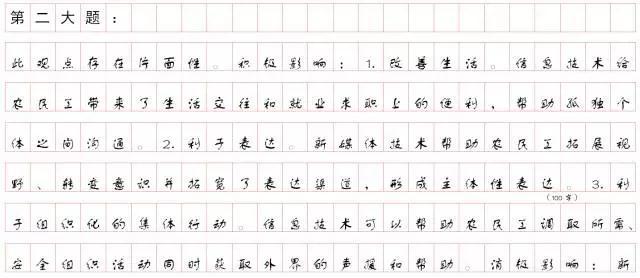 第二大题：
此观点存在片面性。积极影响：1.改善生活。信息技术给
农民工带来了生活交往和就业求职上的便利，帮助孤独个
体之间沟通。2.利于表达。新媒体技术帮助农民工拓展视
野、转变意识并拓宽了表达渠道，形成主体性表达。3.利
（100字）
于组织化的集体行动。信息技术可以帮助农民工调取所需、
安全组织活动同时获取外界的声援和帮助。消极影响：新